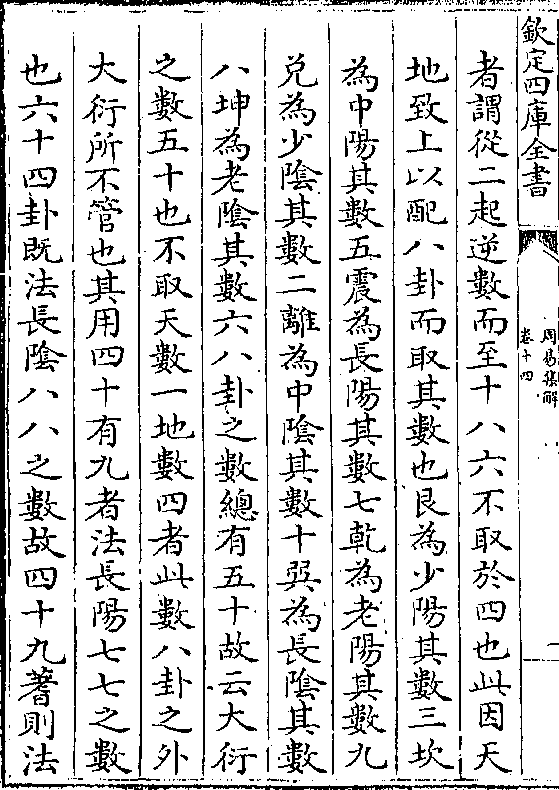 欽定四庫全書
周易集解
卷十四
者謂從二起逆數而至十八六不取於四也此因天
地致上以配八卦而取其數也艮為少陽其數三坎
為中陽其數五震為長陽其數七乾為老陽其數九
兑為少陰其數二離為中陰其數十巽為長陰其數
八坤為老陰其數六八卦之數總有五十故云大衍
之數五十也不取天數一地數四者此數八卦之外
大衍所不管也其用四十有九者法長陽七七之數
也六十四卦既法長陰八八之數故四十九蓍則法